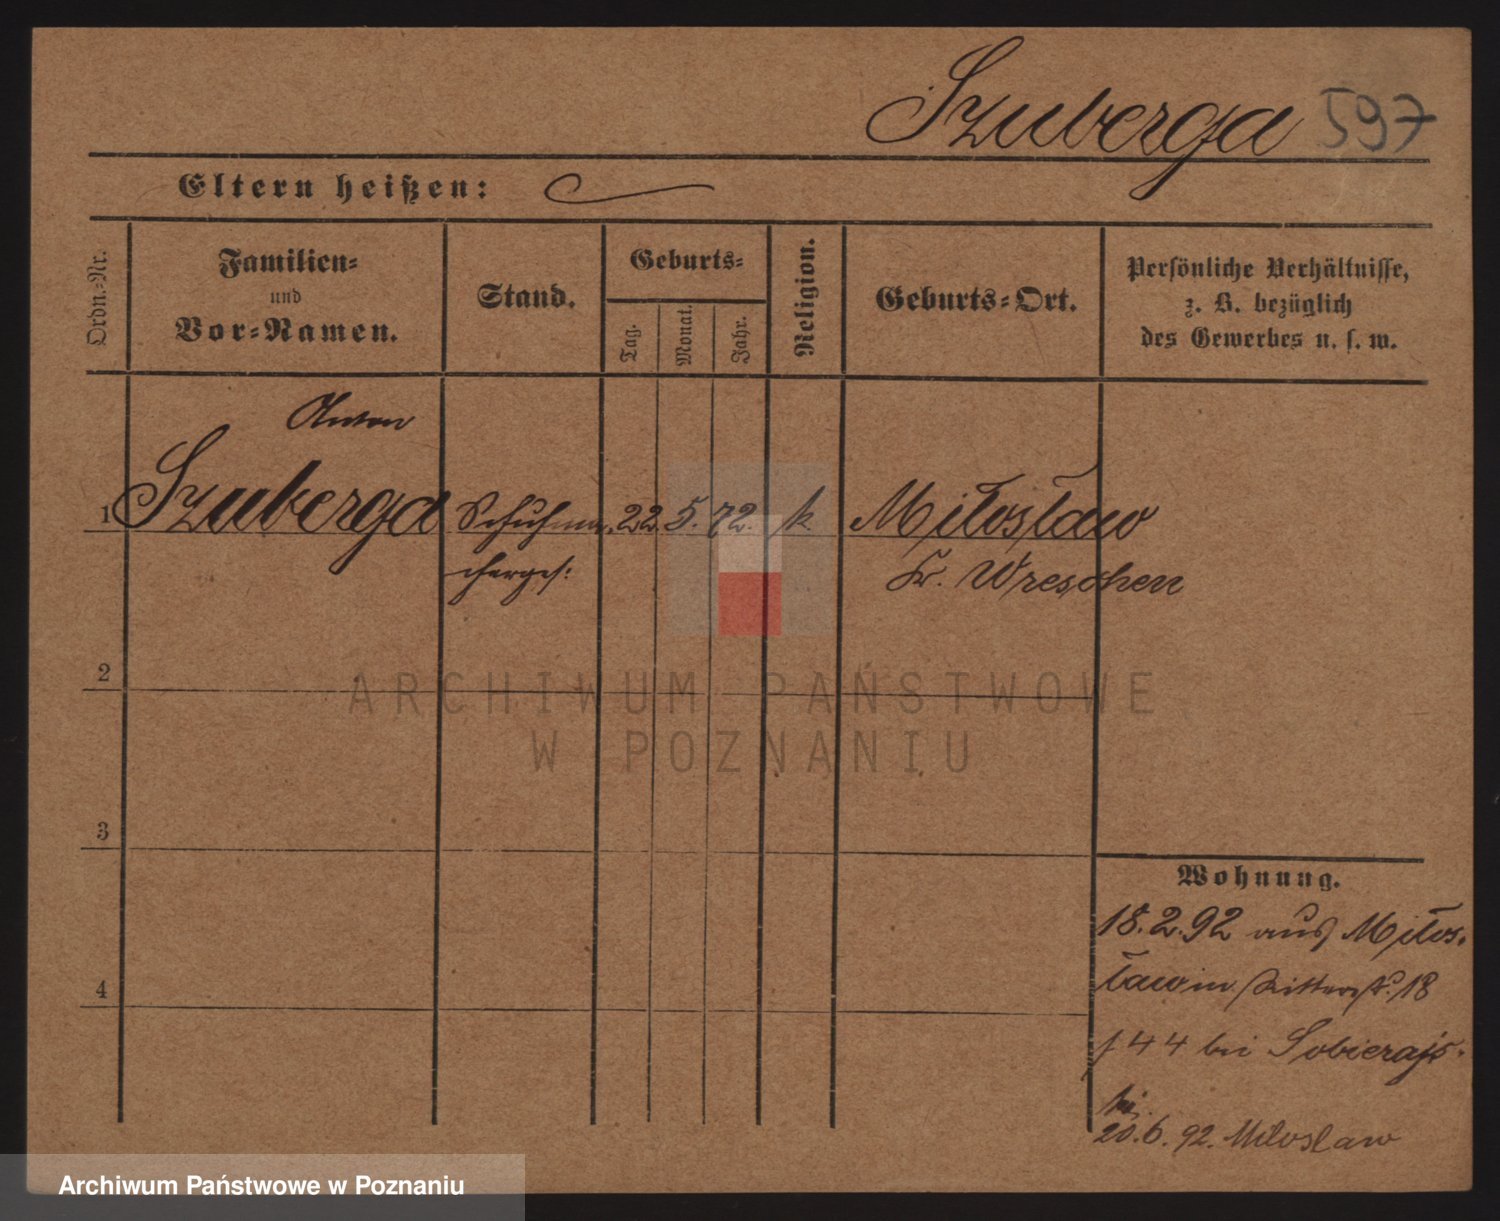 Szuberga 597
Eltern heißen:
Ordn.=Nr.
Familien=
und
Vor=Namen.
Stand.
Geburts=
Tag.
Monat.
Jahr.
Religion.
Geburts=Ort.
Persönliche Verhältnisse,
z. B. bezüglich
des Gewerbes u. s. w.
Anton
1 Szuberga Schuhma- 22. 5. 72. k. Miłosław
cherges: Kr. Wreschen
2
3
4
ARCHIWUM PAŃSTWOWE
W POZNANIU
Wohnung.
18.2.92 aus Miłos-
ław in Ritterstr. 18
f 44 bei Sobierajs-
ki
20.6.92. Miloslaw
Archiwum Państwowe w Poznaniu